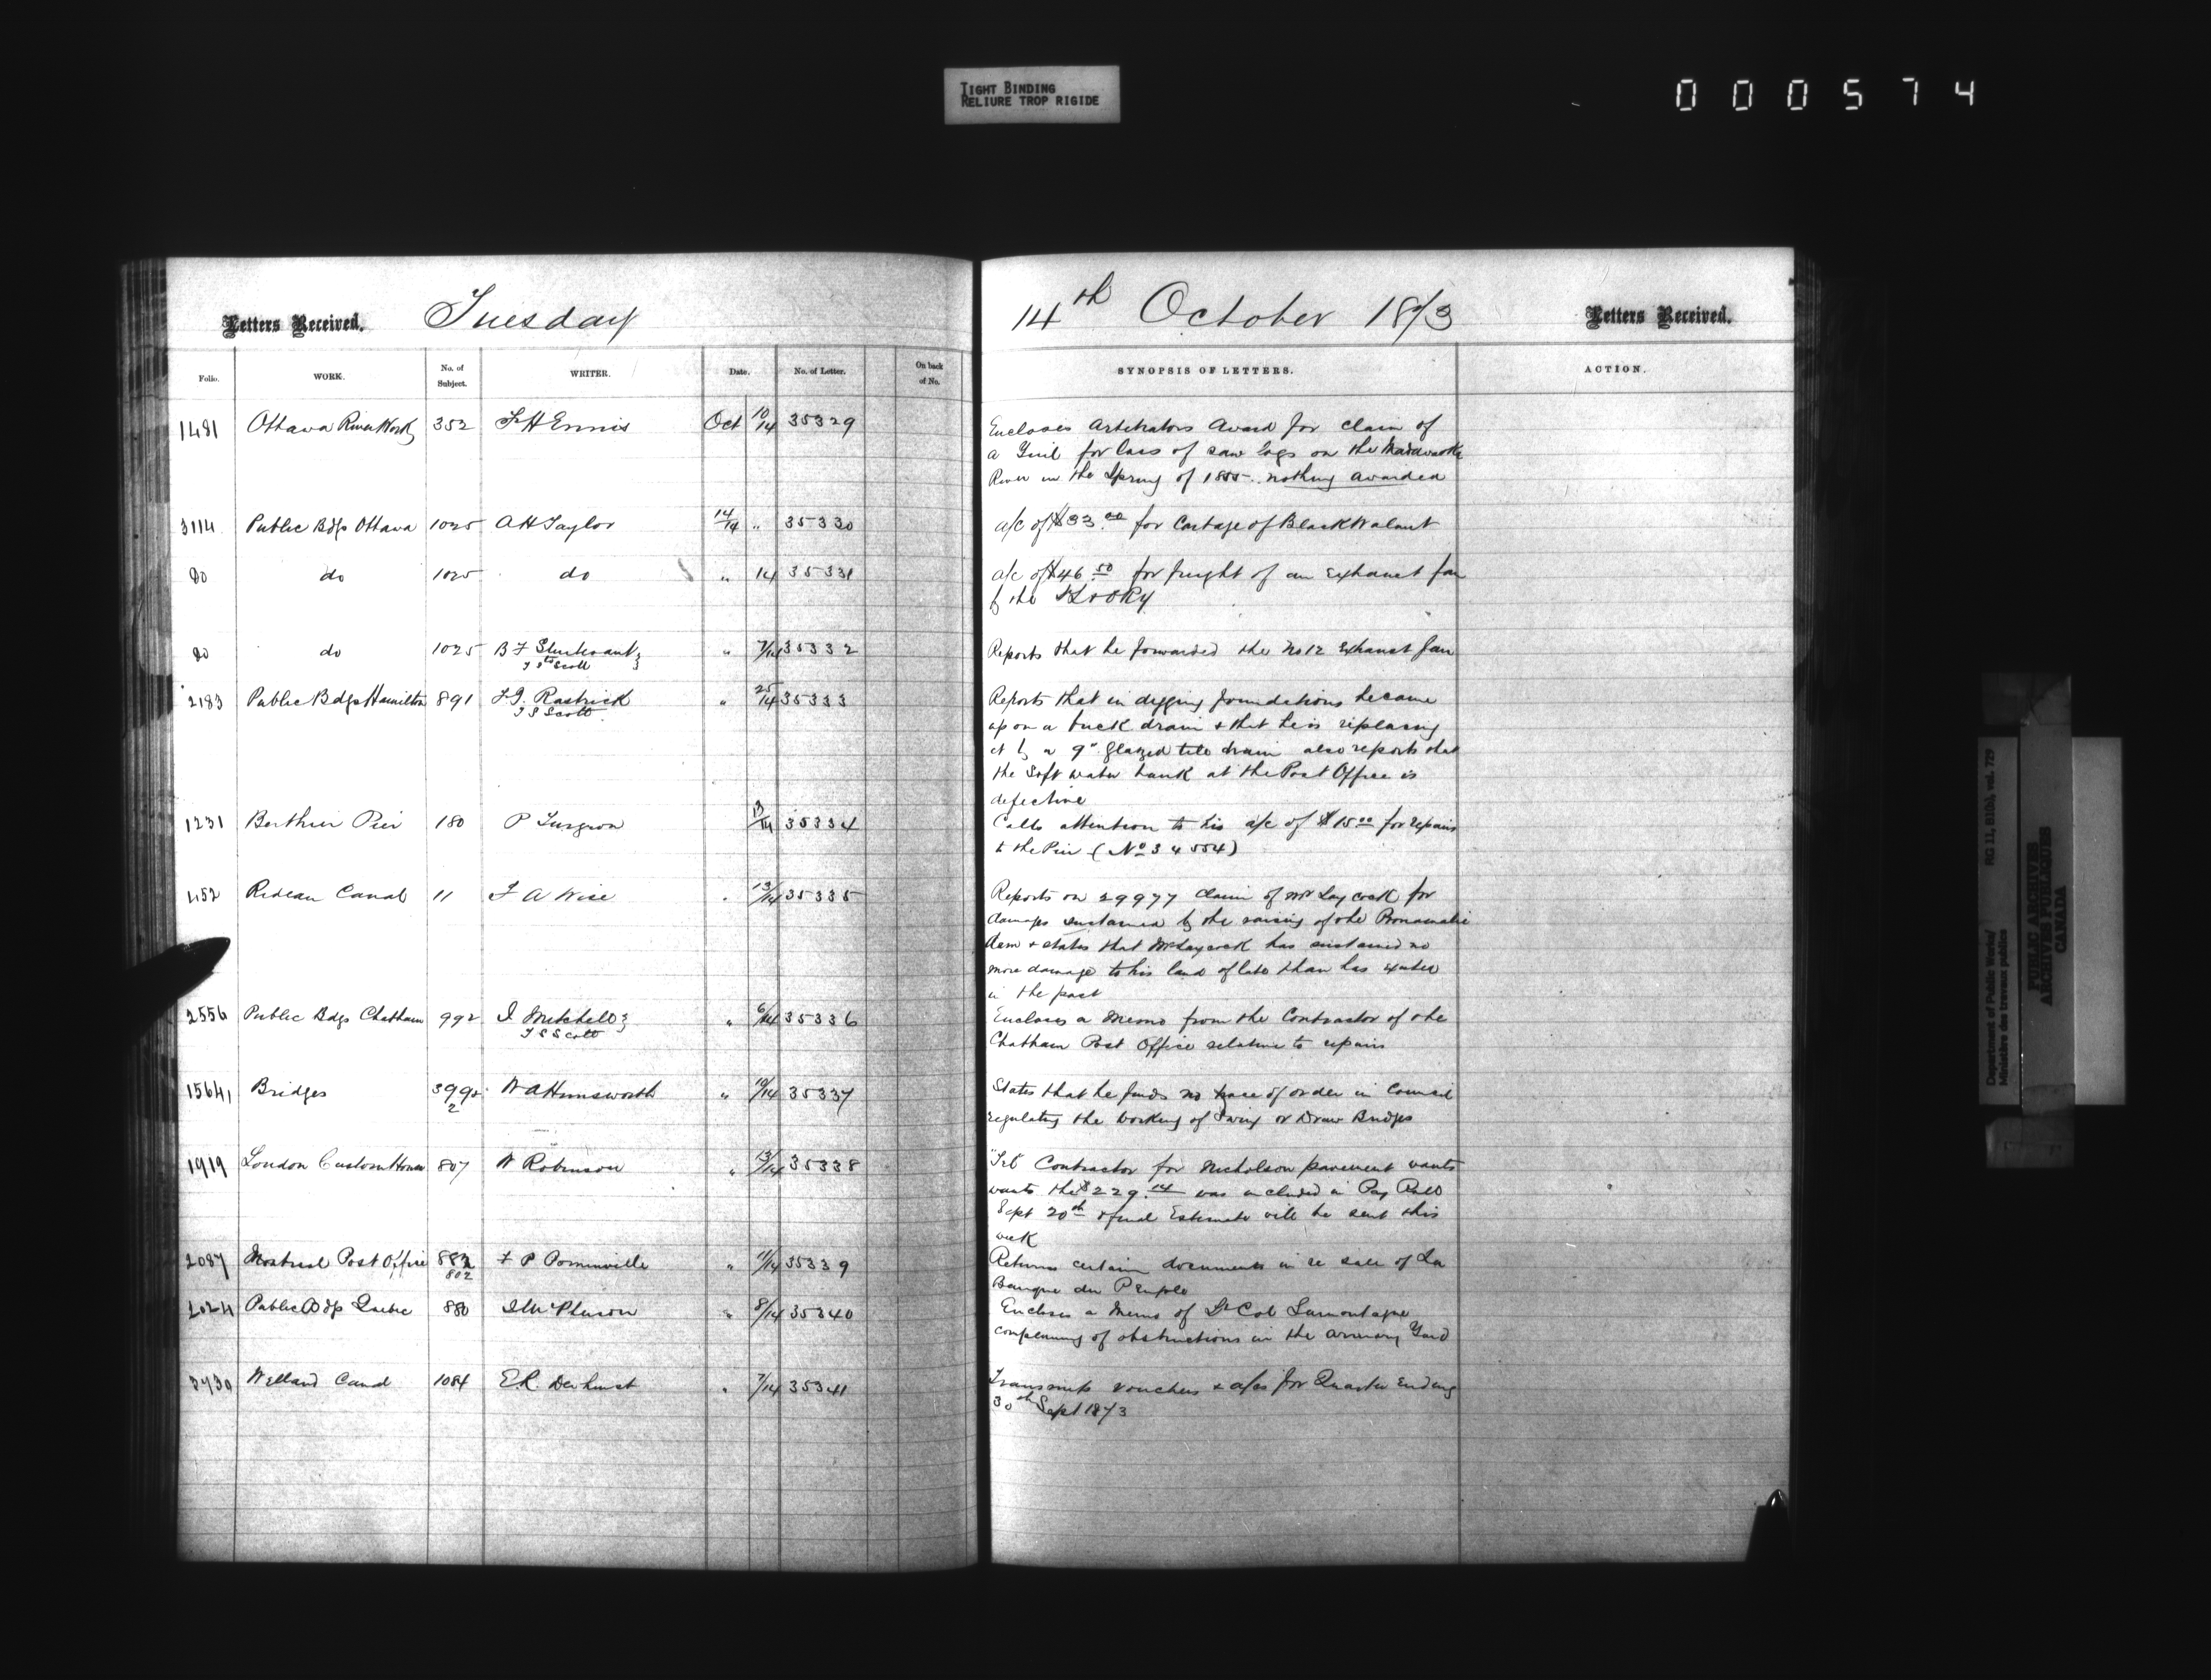 TIGHT BINDING
RELIURE TROP RIGIDE
000574
Letters Received. Tuesday
14th October 1873 Letters Received.
Folio. WORK. No. of Subject. WRITER. Date. No. of Letter. On back of No. SYNOPSIS OF LETTERS. ACTION.
1481 Ottawa River Works 352 F H Ennis Oct 10/14 35329 Encloses Arbitrators Award for claim of
a for loss of saw logs on the Madawaska
River in the Spring of 1855. nothing awarded
3114 Public Bdgs Ottawa 1025 A H Taylor 14/14 " 35330 a/c of $33.00 for Cartage of Black Walnut
do do 1025 do " 14 35331 a/c of $46.50 for freight of an Exhaust fan
do do 1025 B F Sturtevant " 7/14 35332 Reports that he forwarded the No 12 Exhaust fan
T S Scott
2183 Public Bdgs Hamilton 891 F. J. Rastrick " 25/14 35333 Reports that in digging foundations he came
T S Scott
upon a brick drain & that he is replacing
it by a 9" glazed tile drain also reports that
the Soft water tank at the Post Office is
defective
1231 Berthier Pier 180 P Turgeon 13/14 35334 Calls attention to his a/c of $15.00 for repairs
to the Pier (No 34554)
452 Rideau Canal 11 F A Wise " 13/14 35335 Reports on 29977 Claim of Mr Laycock for
damages sustained by the raising of the
dam & states that Mr Laycock has sustained no
more damage to his land of late than has
in the past
2556 Public Bdgs Chatham 992 I Mitchell " 6/14 35336 Encloses a Memo from the Contractor of the
T S Scott
Chatham Post Office relative to repairs
1564 Bridges 399 1/2 W A Himsworth " 10/14 35337 States that he finds no trace of order in Council
regulating the working of Swing or Draw Bridges
1919 London Custom House 807 W Robinson " 13/14 35338 "Tel" Contractor for Nicholson pavement wants
wants the $229.14 was included in Pay Roll
Sept 20th & final Estimate will be sent this
week
2087 Montreal Post Office 882 F P Pominville " 11/14 35339 Returns certain documents in re sale of La
802
Banque du Peuple
2024 Public Bdgs Quebec 880 " 8/14 35340 Encloses a Memo of Lt Col Lamontagne
complaining of obstructions in the armory Yard
3730 Welland Canal 1084 E R. Dewhurst " 7/14 35341 Transmits vouchers & a/cs for Quarter Ending
30th Sept 1873
Department of Public Works/ RG 11, B1(b), vol. 729
Ministère des travaux publics
PUBLIC ARCHIVES
ARCHIVES PUBLIQUES
CANADA